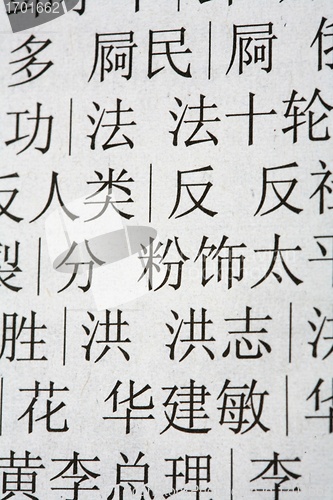 多 屙民|屙
功|法 法十轮
反人类|反 反社
裂|分 粉饰太平
胜|洪 洪志|决
|花 华建敏|华
黄李总理|李